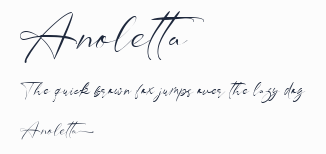 Anoletta
The quick brown fox jumps over the lazy dog
Anoletta